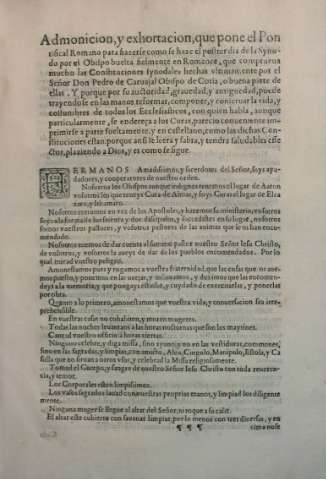 Admonicion, y exhortacion, que pone el Pon
tifical Romano para hazerse como se haze el postrer dia de la Syno
do por el Obispo buelta fielmente en Romance, que comprueua
mucho las Constitaciones synodales hechas vltimamente por el
Señor Don Pedro de Caruajal Obispo de Coria, o buena parte de
ellas. Y porque por su auctoridad, grauedad, y antiguedad, puede
trayendose en las manos reformar, componer, y conseruar la vida, y
costumbres de todos los Ecclesiasticos, con quien habla, aunque
particularmente, se endereça a los Curas, parecio conueniente im
primirse a parte sueltamente, y en castellano, como las dichas Cons
tituciones estan, porque ansi se leera y sabra, y tendra saludables efe
ctos, plaziendo a Dios, y es como se sigue.
HERMANOS Amadissimos, y sacerdotes del Señor, soys ayu
dadores, y cooperatores de nuestro orden.
Nosotros los Obispos aunque indignos tenemos el lugar de Aaron
vosotros los que teneys Cura de Almas, y soys Curas el lugar de Elea
zaro, y Ithamaro.
Nosotros estamos en vez de los Apostoles, y hazemos su ministerio, vosotros
soys a la forma de los setenta y dos discipulos, y succedeys en su lugar, nosotros
somos vuestros pastores, y vosotros pastores de las animas que os han sido
encomendadas.
Nosotros tenemos de dar cuenta al summo pastor nuestro Señor Iesu Christo,
de vosotros, y vosotros la aueys de dar de los pueblos encomendados. Por lo
qual mirad vuestro peligro.
Amonestamos pues y rogamos a vuestra fraternidad, que las cosas que os ame
nestamos
a la memoria, y que pongays estudio, y cuydado de executarlas, y ponerlas
por obra.
Quanto a lo primero, amonestamos que vuestra vida, y conuersacion sea irre
prehensible.
En vuestras casas no cohabiten, ni moren mugeres.
Todas las noches leuantaos a las horas nocturnas que son las maytines.
Cantad vuestro officio a horas ciertas.
Ninguno celebre, y diga missa, sino ayuno, y no en las vestiduras, communes,
sino en las sagradas, y limpias, con amito, Alua, Cingulo, Manipulo, Estola, y Ca
sulla que no siruan a otros vsos, y celebrad la Missa religiosamente.
Tomad el Cuerpo, y sangre de nuestro Señor Iesu Christo con toda reueren
cia, y temor.
Los Corporales esten limpissimos.
Los vasos sagrados lauad con vuestras proprias manos, y limpiad los diligente
mente.
Ninguna muger se llegue al altar del Señor, ni toque a su caliz.
El altar este cubierto con sauanas limpias, por lo menos con tres diuersas, y en
¶ ¶ ¶ cima no se